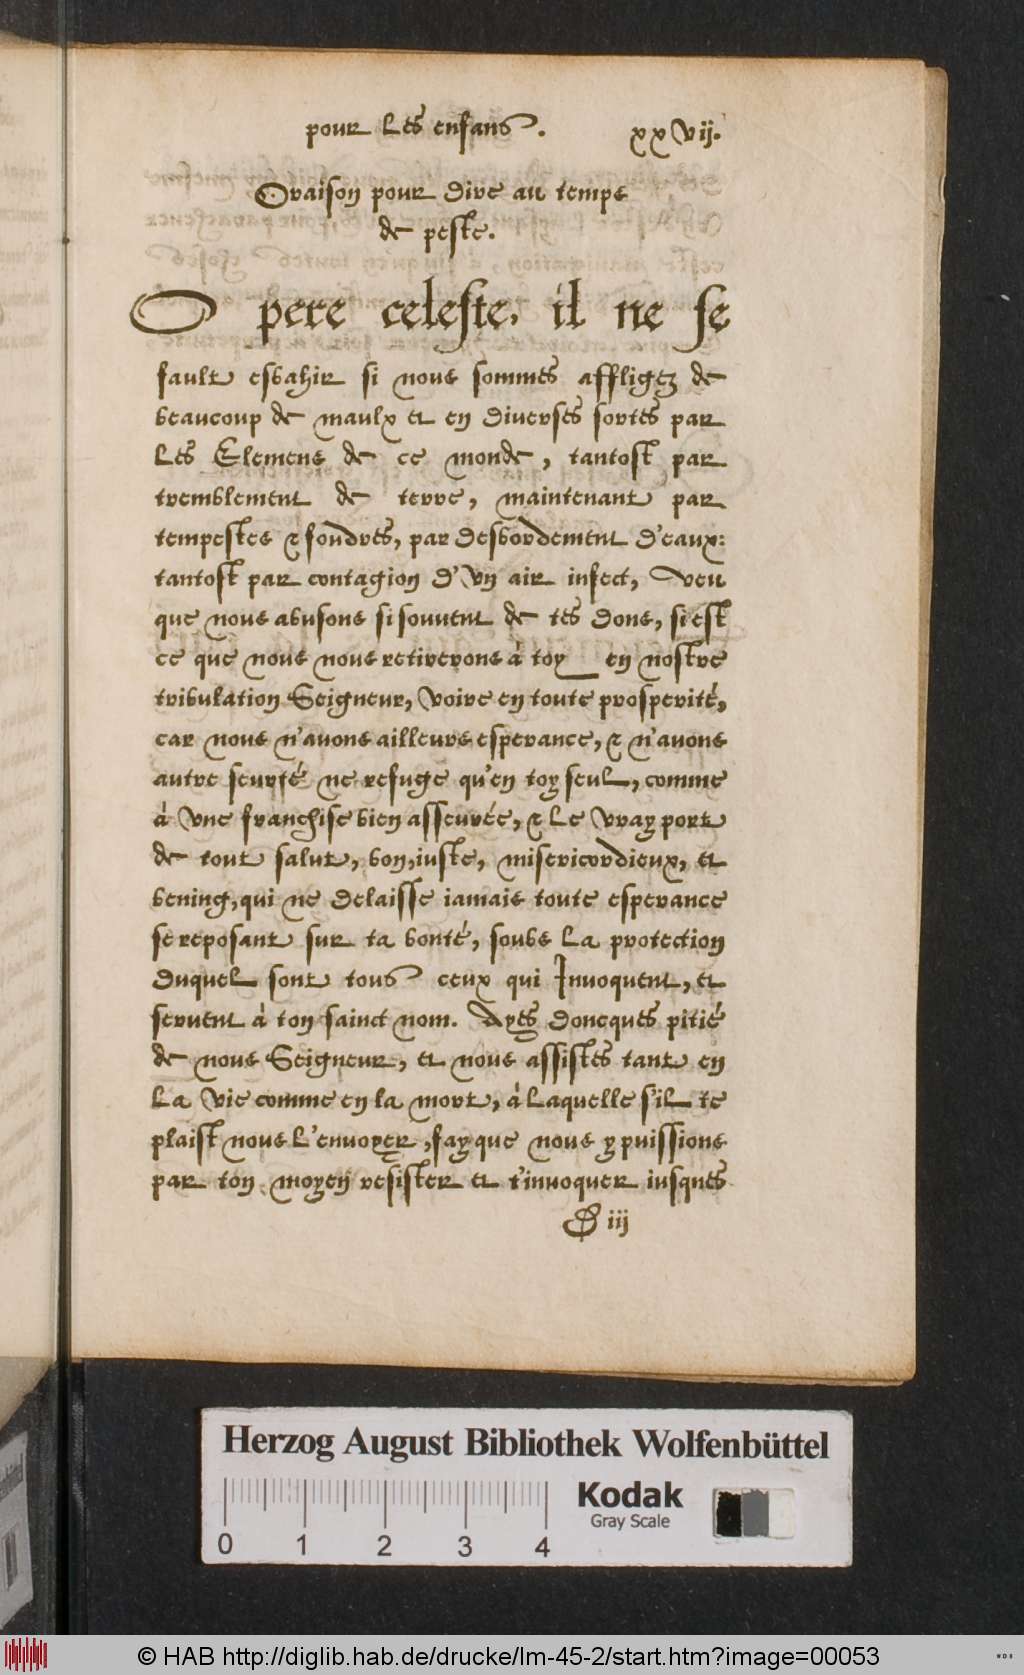 pour les enfans. xxvij.
Oraison pour dire au temps
de peste.
O pere celeste, il ne se
fault esbahir si nous sommes affligez de
beaucoup de maulx et en diverses sortes par
les Elemens de ce monde, tantost par
tremblement de terre, maintenant par
tempestes & foudres, par desbordement d'eaux:
tantost par contagion d'vn air infect, veu
que nous abusons si souvent de tes dons, si est
ce que nous nous retirerons à toy en nostre
tribulation Seigneur, voire en toute prosperité,
car nous n'avons ailleurs esperance, & n'avons
autre seurté ne refuge qu'en toy seul, comme
à vne franchise bien asseurée, & le vray port
de tout salut, bon, iuste, misericordieux, et
bening, qui ne delaisse iamais toute esperance
se reposant sur ta bonté, soubs la protection
duquel sont tous ceux qui Invoquent, et
servent à ton sainct nom. Ayes doncques pitié
de nous Seigneur, et nous assistes tant en
la vie comme en la mort, à laquelle s'il te
plaist nous l'envoyer, fay que nous y puissions
par ton moyen resister et t'invoquer iusques
D iij
Herzog August Bibliothek Wolfenbüttel
Kodak
Gray Scale
0 1 2 3 4
© HAB http://diglib.hab.de/drucke/lm-45-2/start.htm?image=00053